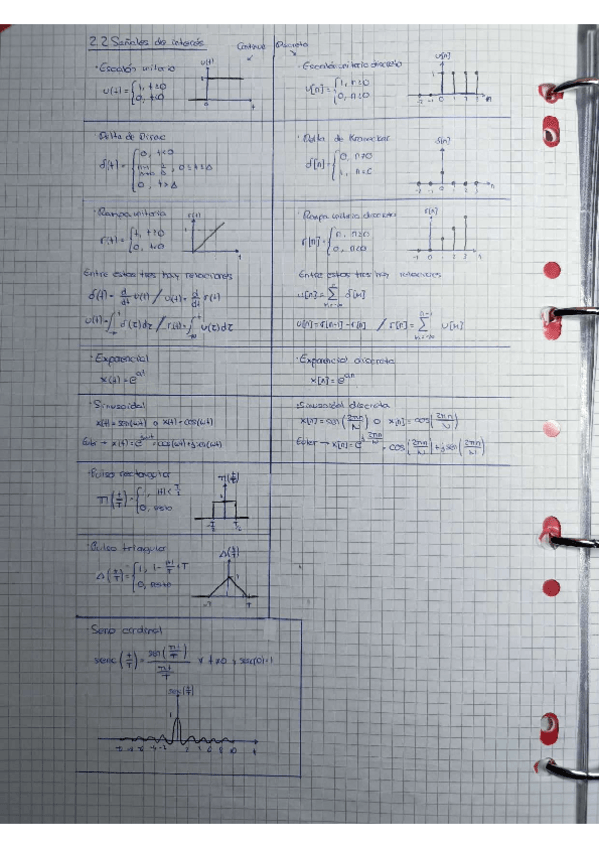 2.2 Señales de interés
Continuo Discreta
· Escalón unitario
u(t)
u(t)={1, t≥0
0, t<0
t
· Escalón unitario discreto
u[n]
u[n]={1, n≥0
0, n<0
· Delta de Dirac
δ(t)={0, t<0
, 0≤t≤Δ
0, t>Δ
· Delta de Kronecker
δ[n]
δ[n]={0, n≠0
1, n=0
· Rampa unitaria
r(t)={t, t≥0
0, t<0
t
· Rampa unitaria discreta
r[n]
r[n]={n, n≥0
0, n<0
Entre estos tres hay relaciones
δ(t)= d/dt u(t) / u(t)= d/dt r(t)
u(t)=∫ δ(τ)dτ / r(t)=∫ u(τ)dτ
Entre estos tres hay relaciones
u[n]=∑ δ[k]
u[n]=r[n+1]-r[n] / r[n]=∑ u[k]
· Exponencial
x(t)=e^at
· Exponencial discreta
x[n]=e^an
· Sinusoidal
x(t)=sen(ωt) o x(t)=cos(ωt)
Euler → x(t)=e^jωt=cos(ωt)+jsen(ωt)
· Sinusoidal discreta
x[n]=sen(2πn/N) o x[n]=cos(2πn/N)
Euler → x[n]=e^j2πn/N=cos(2πn/N)+jsen(2πn/N)
· Pulso rectangular
Π(t/T)
Π(t/T)={1, |t|<T/2
0, resto
· Pulso triangular
Δ(t/T)
Δ(t/T)={1, 1-|t|/T
0, resto
-T T
· Seno cardinal
senc(t/T)= sen(πt/T) / πt/T ∀ t≠0, senc(0)=1
senc(t/T)
1
t